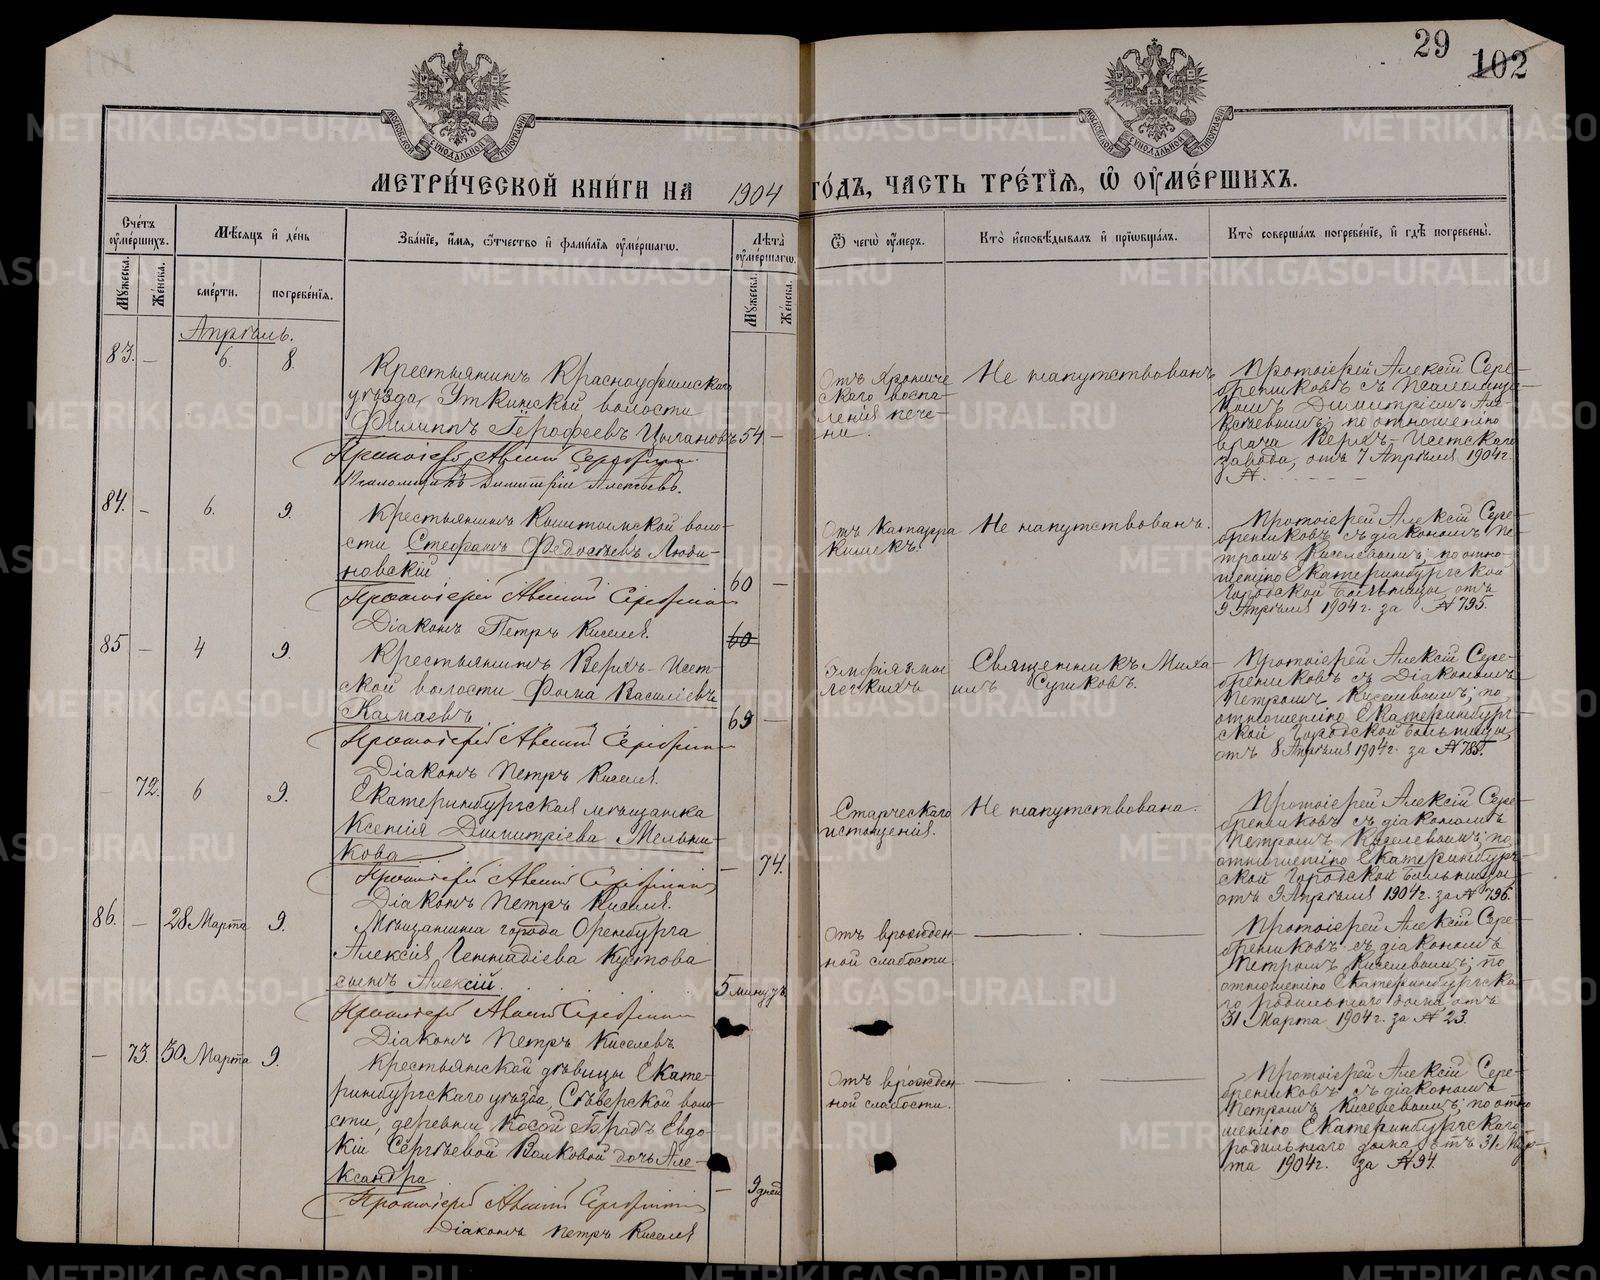 29
102
МЕТРИ́ЧЕСКОЙ КНИ́ГИ НА 1904 ГО́ДЪ, ЧАСТЬ ТРЕ́ТІѦ, Ѡ ОУ҆МЕ́РШИХЪ.
Сче́тъ оу҆ме́ршихъ.
Мѣ́сяцъ и҆ де́нь
Зва́ніе, и҆́мя, ѻ҆́тчество и҆ фами́лія оу҆ме́ршагѡ.
Лѣ́та оу҆ме́ршагѡ.
Ѿ чегѡ̀ оу҆́меръ.
Кто̀ и҆сповѣ́дывалъ и҆ прїѡбща́лъ.
Кто̀ соверша́лъ погребе́ніе, и҆ гдѣ̀ погребены̀.
Мꙋ́жеска.
Же́нска.
сме́рти.
погребе́нія.
Мꙋ́жеска.
Же́нска.
Апрѣль.
83. – 6. 8.
Крестьянинъ Красноуфимскаго
уѣзда, Уткинской волости
Филиппъ Іерофеевъ Цыгановъ 54 –
Протоіерей Алексій Серебренниковъ
Псаломщикъ Димитрій Алексѣевъ.
Отъ хрониче
скаго воспа-
ленія пече-
ни.
Не напутствованъ
Протоіерей Алексій Сере-
бренниковъ съ псаломщи-
комъ Димитріемъ Але-
ксѣевымъ; по отношенію
врача Верхъ-Исетскаго
завода, отъ 7 Апрѣля 1904 г.
№ . - - - -
84. – 6. 9.
Крестьянинъ воло-
сти Стефанъ Федосѣевъ Люби-
новскій 60 –
Протоіерей Алексій Серебренниковъ
Діаконъ Петръ Киселевъ.
Отъ катарра
кишекъ.
Не напутствованъ.
Протоіерей Алексій Сере-
бренниковъ съ діакономъ Пе-
тромъ Киселевымъ; по отно-
шенію Екатеринбургской
городской больницы отъ
9 Апрѣля 1904 г. за № 795.
85 – 4 9.
60
Крестьянинъ Верхъ-Исет-
ской волости Фома Васильевъ
69 –
Протоіерей Алексій Серебренниковъ
Діаконъ Петръ Киселевъ.
Эмфизэмы
легкихъ
Священникъ Миха-
илъ Сушковъ.
Протоіерей Алексій Сере-
бренниковъ съ Діакономъ
Петромъ Киселевымъ; по
отношенію Екатеринбург-
ской Городской больницы,
отъ 8 Апрѣля 1904 г. за № 785.
– 72. 6 9.
Екатеринбургская мѣщанка
Ксенія Димитріева Мельни-
кова – 74.
Протоіерей Алексій Серебренниковъ
Діаконъ Петръ Киселевъ.
Старческаго
истощенія.
Не напутствована.
Протоіерей Алексій Сере-
бренниковъ съ діакономъ
Петромъ Киселевымъ; по
отношенію Екатеринбург-
ской Городской Больницы
отъ 9 Апрѣля 1904 г. за № 796.
86. – 28 Марта 9.
Мѣщанина города Оренбурга
Алексія Геннадіева Кустова
сынъ Алексій. 5 минутъ
Протоіерей Алексій Серебренниковъ
Діаконъ Петръ Киселевъ
Отъ врожден-
ной слабости.
Протоіерей Алексій Сере-
бренниковъ съ діакономъ
Петромъ Киселевымъ; по
отношенію Екатеринбургска-
го родильнаго дома, отъ
31 Марта 1904 г. за № 23.
– 73. 30 Марта 9.
Крестьянской дѣвицы Екате-
ринбургскаго уѣзда, Сѣверской воло-
сти, деревни Косой Бродъ Евдо-
кіи Сергѣевой Волковой дочь Але-
ксандра – 9 дней
Протоіерей Алексій Серебренниковъ
Діаконъ Петръ Киселевъ
Отъ врожден-
ной слабости.
Протоіерей Алексій Сере-
бренниковъ съ діакономъ
Петромъ Киселевымъ; по отно-
шенію Екатеринбургскаго
родильнаго дома, отъ 31 Мар-
та 1904 г. за № 94.
METRIKI.GASO-URAL.RU